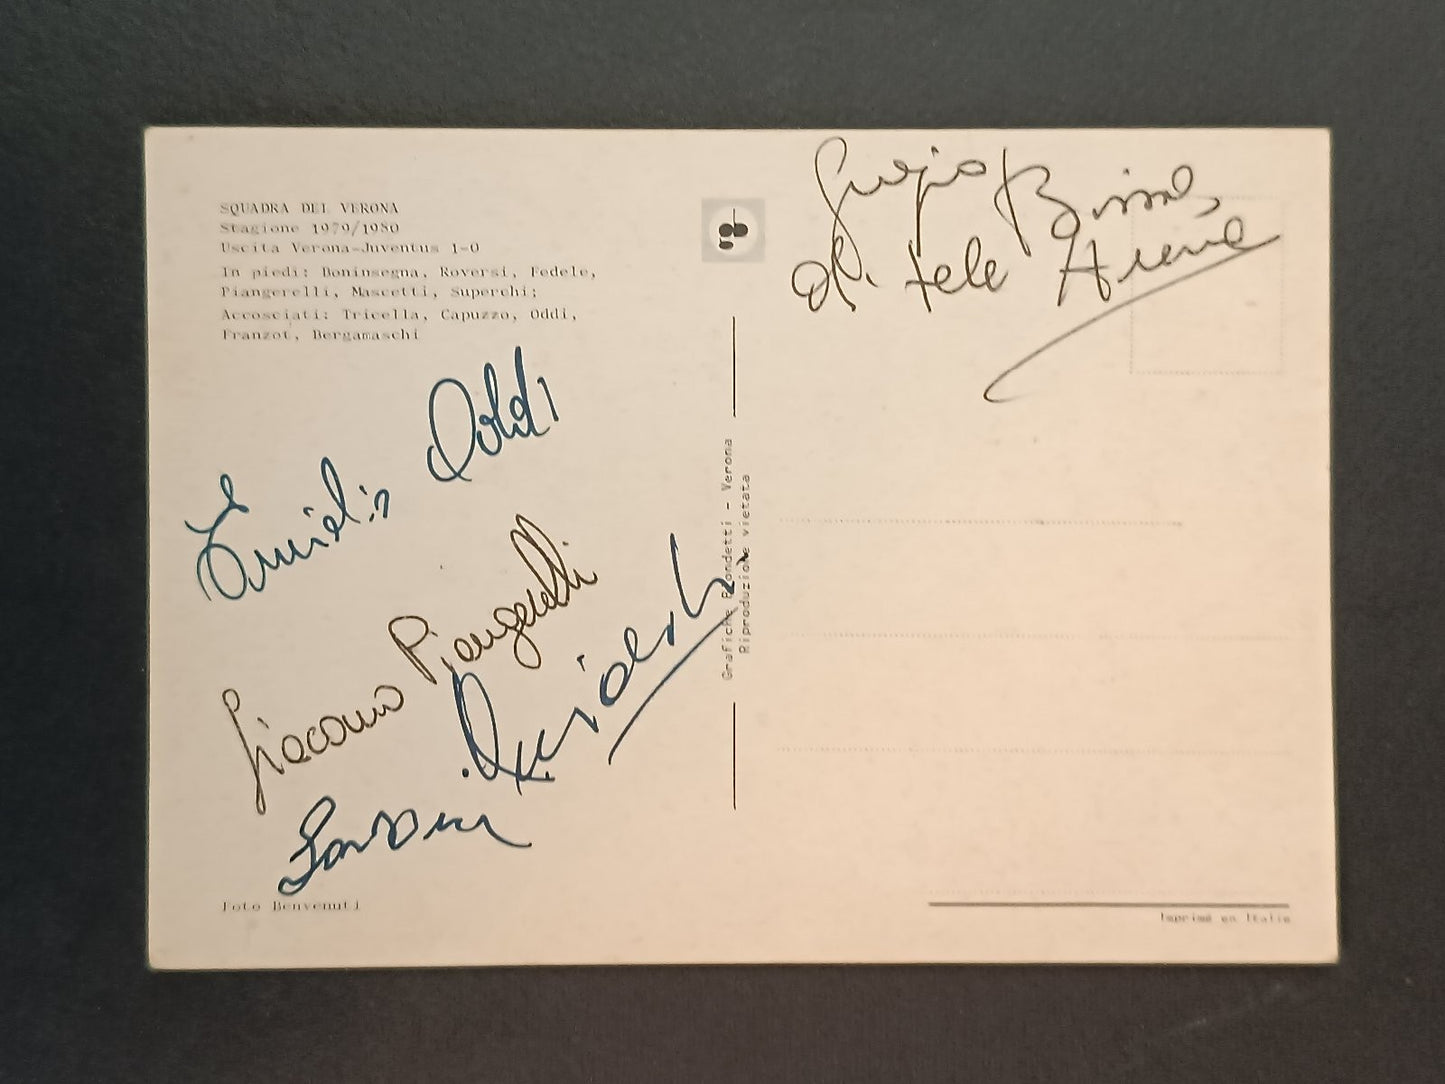 SQUADRA DEL VERONA
Stagione 1979/1980
Uscita Verona-Juventus 1-0
In piedi: Boninsegna, Roversi, Fedele,
Piangerelli, Mascetti, Superchi;
Accosciati: Tricella, Capuzzo, Oddi,
Franzot, Bergamaschi
Emidio Oddi
Giacomo Piangerelli
Foto Benvenuti
Grafiche Biondetti - Verona
Riproduzione vietata
Sergio
di tele Arena
Imprimé en Italie